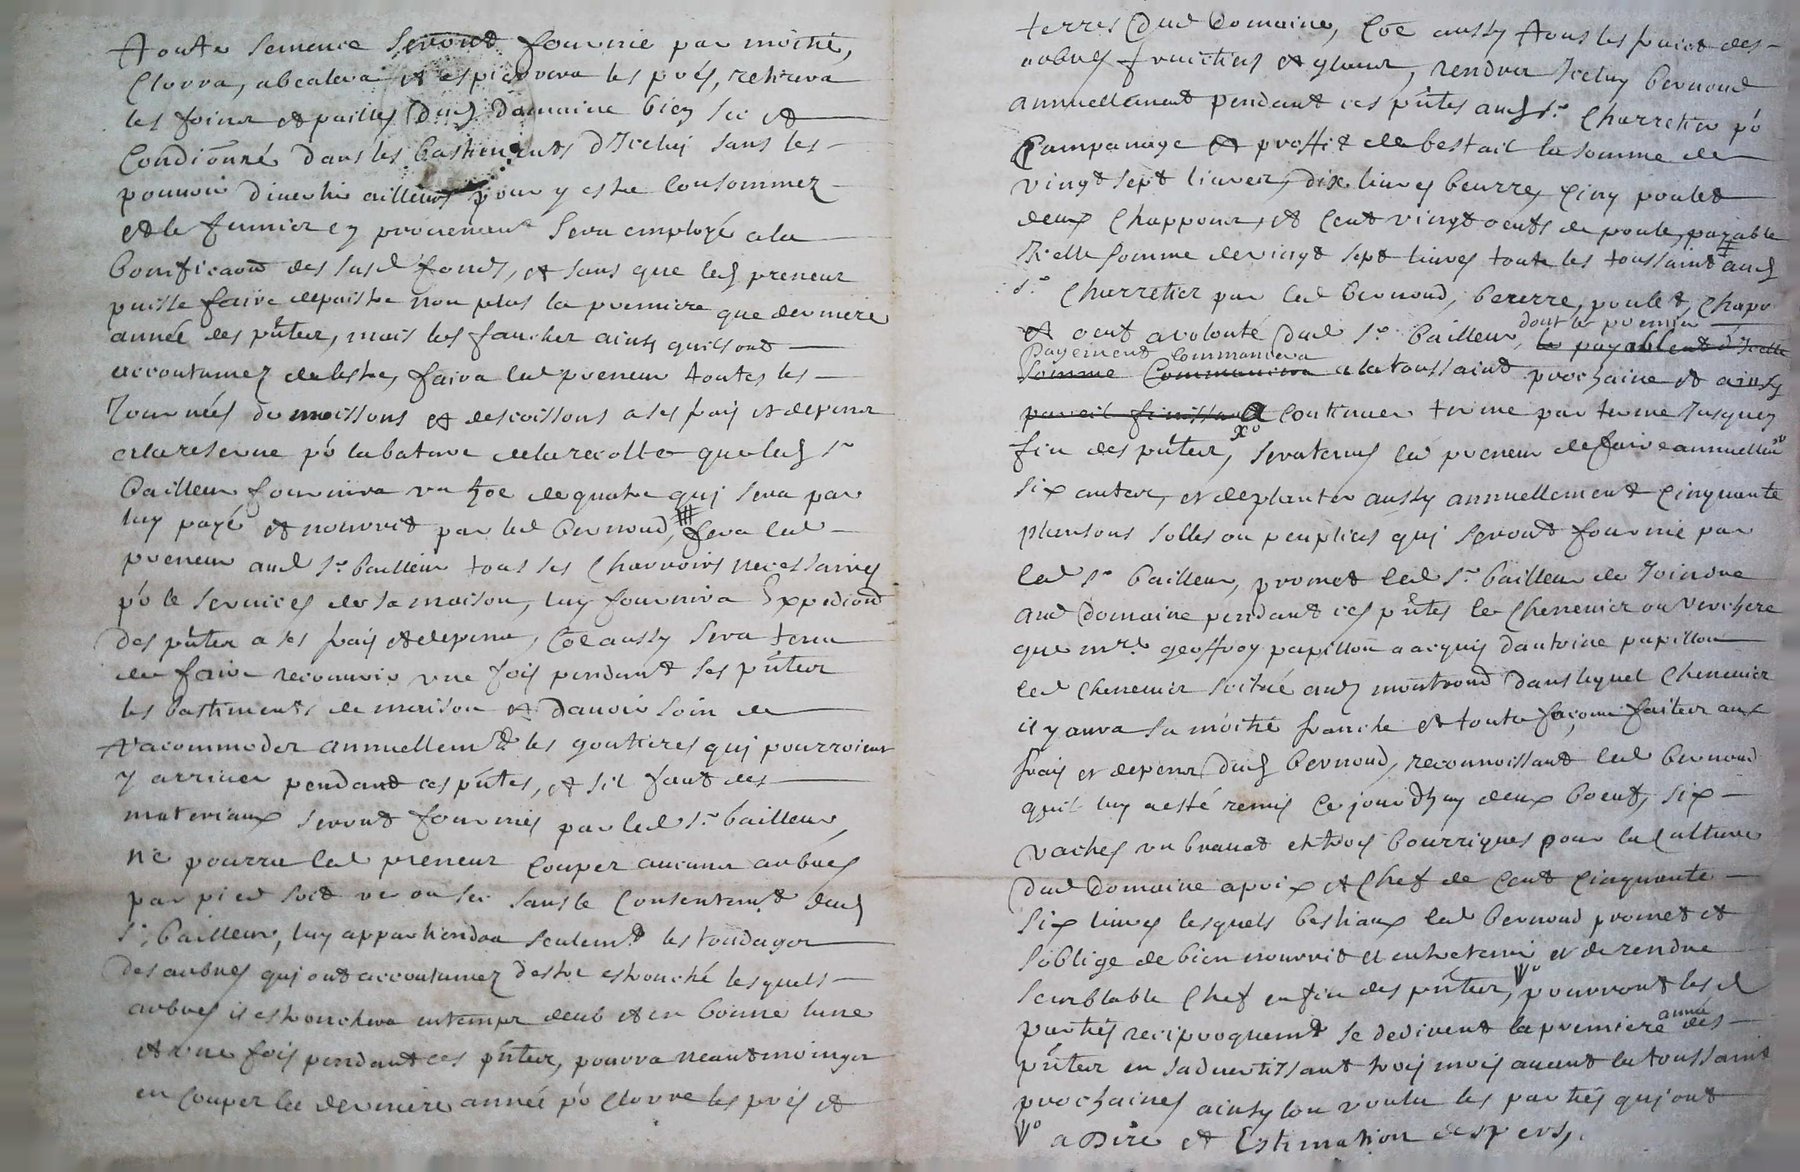 toute semence seront fournie par moitié,
Clorra, abealera et espierrera les prés, retirera
les foins et pailles dud domaine bien sec et
Condiōnné dans les bastiments d'Iceluy sans les
pouvoir divertir ailleurs pour y estre Consommez
et le fumier en provenent sera employé a la
bonificaōn des susd fonds, et sans que led preneur
puisse faire depaistre non plus la premiere que derniere
année des pn̄tes, mais les faucher ainsy quils ont
accoutumez de lestre, faira led preneur toutes les
Journéés de moissons et descoissons a ses frais et depens
a la reserve po la bature de la recolte que led sr
bailleur fournira un hōe de quatre qui sera par
luy payé et nourrit par led bernoud, fera led
preneur aud sr bailleur tous les Charroirs necessaires
po le services de sa maison, luy fournira Expediōn
des pn̄tes a ses frais et depens, Cōe aussy sera tenu
de faire recouvrir une fois pendant ses pn̄tes
les bastiments de maison et davoir soin de
racommoder annuellemt les goutieres qui pourroient
y arriver pendant ces pn̄tes, et sil faut des
materiaux seront fournies par led sr bailleur,
ne pourra led preneur Couper aucuns arbres
par pied soit ver ou sec sans le Consentemt dud
sr bailleur, luy appartiendra seulemt les tondages
des arbres qui ont accoutumez destre estronché lesquels
arbres il estronchera en temps deub et en bonne lune
et une fois pendant ces pn̄tes, pourra neantmoinges
en Couper la derniere année po Clorre les prés et
terres dud Domaine, Cōe aussy tous les fruict des
arbres fruictiers et glans, rendra Iceluy bernoud
annuellement pendant ces pn̄tes aud sr Charretier po
Campanage et proffit de bestail la somme de
vingt sept livres, dix livres beurre, Cinq poulet
deux Chappons, et Cent vingt oeufs de poule, payable
Icelle somme de vingt sept livres toute les toussaint aud
sr Charretier par led bernoud, beurre, poulet, Chapo
et oeuf a volonté dud sr bailleur, dont le premier
le payablent d'Icelle
Payement Commancera
somme Commancera a la toussaint prochaine et ainsy
pareil finissant a Continuer terme par terme Jusques
fin des pn̄tes, xo sera tenus led preneur de faire annuellemt
six antes, et de planter aussy annuellement Cinquante
plansons solles ou peupliers qui seront fournie par
led sr bailleur, promet led sr bailleur de Joindre
aud Domaine pendant ces pn̄tes le Chenevier ou verchere
que mre geoffroy papillon a acquis dantoine papillon
led Chenevier scitué aud montrond dans lequel Chenevier
il y aura sa moitié franche et toute façons faites aux
frais et depens dud bernoud, reconnoissant led bernoud
quil luy a esté remis Ce jourdhuy deux boeufs, six
vaches un bravat et trois bourriques pour la Culture
dud Domaine a prix et Chef de Cent Cinquante
six livres lesquels bestiaux led bernoud promet et
soblige de bien nourrit et entretenir et de rendre
semblable Chef en fin des pn̄tes, vo pourront lesd
parties reciproquemt se dedirent la premiere année des
pn̄tes en sadvertissant trois mois avant la toussaint
prochaines ainsy lon voulu les parties qui ont
vo a Dire et Estimation despers,